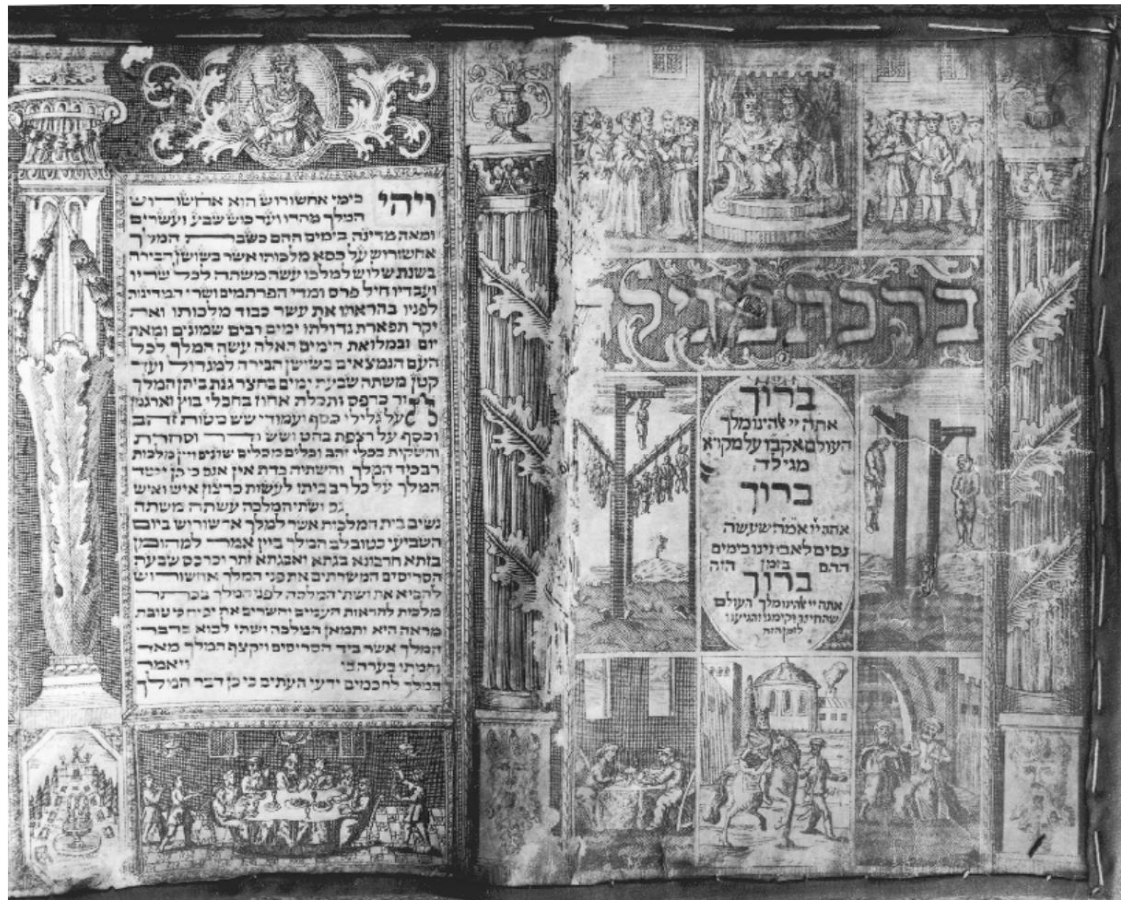 ברכת מגילה
ברוך
אתה יי אלהינו מלך
העולם אקבו על מקרא
מגילה
ברוך
אתה יי אמה שעשה
נסים לאבותינו בימים
ההם בזמן הזה
ברוך
אתה יי אלהינו מלך העולם
שהחיינו וקיימנו והגיענו
לזמן הזה
ויהי בימי אחשורוש הוא אחשורוש
המלך מהדו ועד כוש שבע ועשרים
ומאה מדינה בימים ההם כשבת המלך
אחשורוש על כסא מלכותו אשר בשושן הבירה
בשנת שלוש למלכו עשה משתה לכל שריו
ועבדיו חיל פרס ומדי הפרתמים ושרי המדינות
לפניו בהראתו את עשר כבוד מלכותו ואת
יקר תפארת גדולתו ימים רבים שמונים ומאת
יום ובמלואת הימים האלה עשה המלך לכל
העם הנמצאים בשושן הבירה למגדול ועד
קטן משתה שבעת ימים בחצר גנת ביתן המלך
חור כרפס ותכלת אחוז בחבלי בוץ וארגמן
על גלילי כסף ועמודי שש מטות זהב
וכסף על רצפת בהט ושש ודר וסחרת
והשקות בכלי זהב וכלים מכלים שונים ויין מלכות
רב כיד המלך והשתיה כדת אין אנס כי כן יסד
המלך על כל רב ביתו לעשות כרצון איש ואיש
גם ושתי המלכה עשתה משתה
נשים בית המלכות אשר למלך אחשורוש ביום
השביעי כטוב לב המלך ביין אמר למהומן
בזתא חרבונא בגתא ואבגתא זתר וכרכס שבעת
הסריסים המשרתים את פני המלך אחשורוש
להביא את ושתי המלכה לפני המלך בכתר
מלכות להראות העמים והשרים את יפיה כי טובת
מראה היא ותמאן המלכה ושתי לבוא בדבר
המלך אשר ביד הסריסים ויקצף המלך מאד
וחמתו בערה בו ויאמר
המלך לחכמים ידעי העתים כי כן דבר המלך